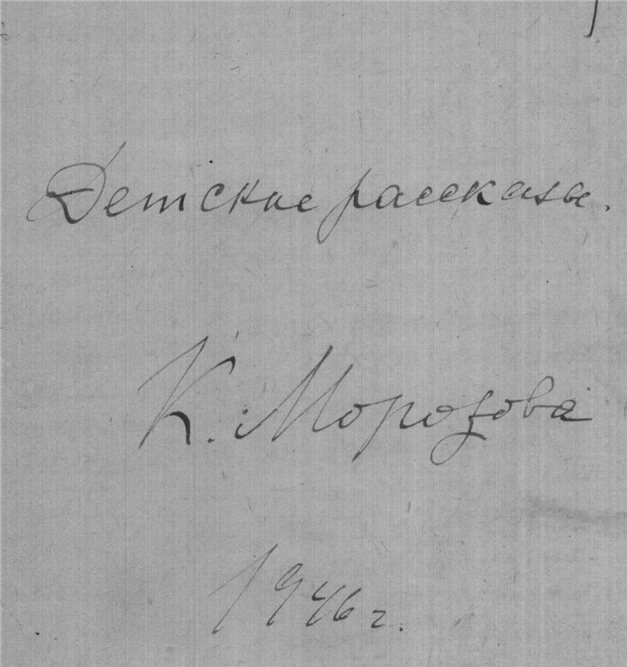 Детские рассказы.
К. Морозова
1946 г.